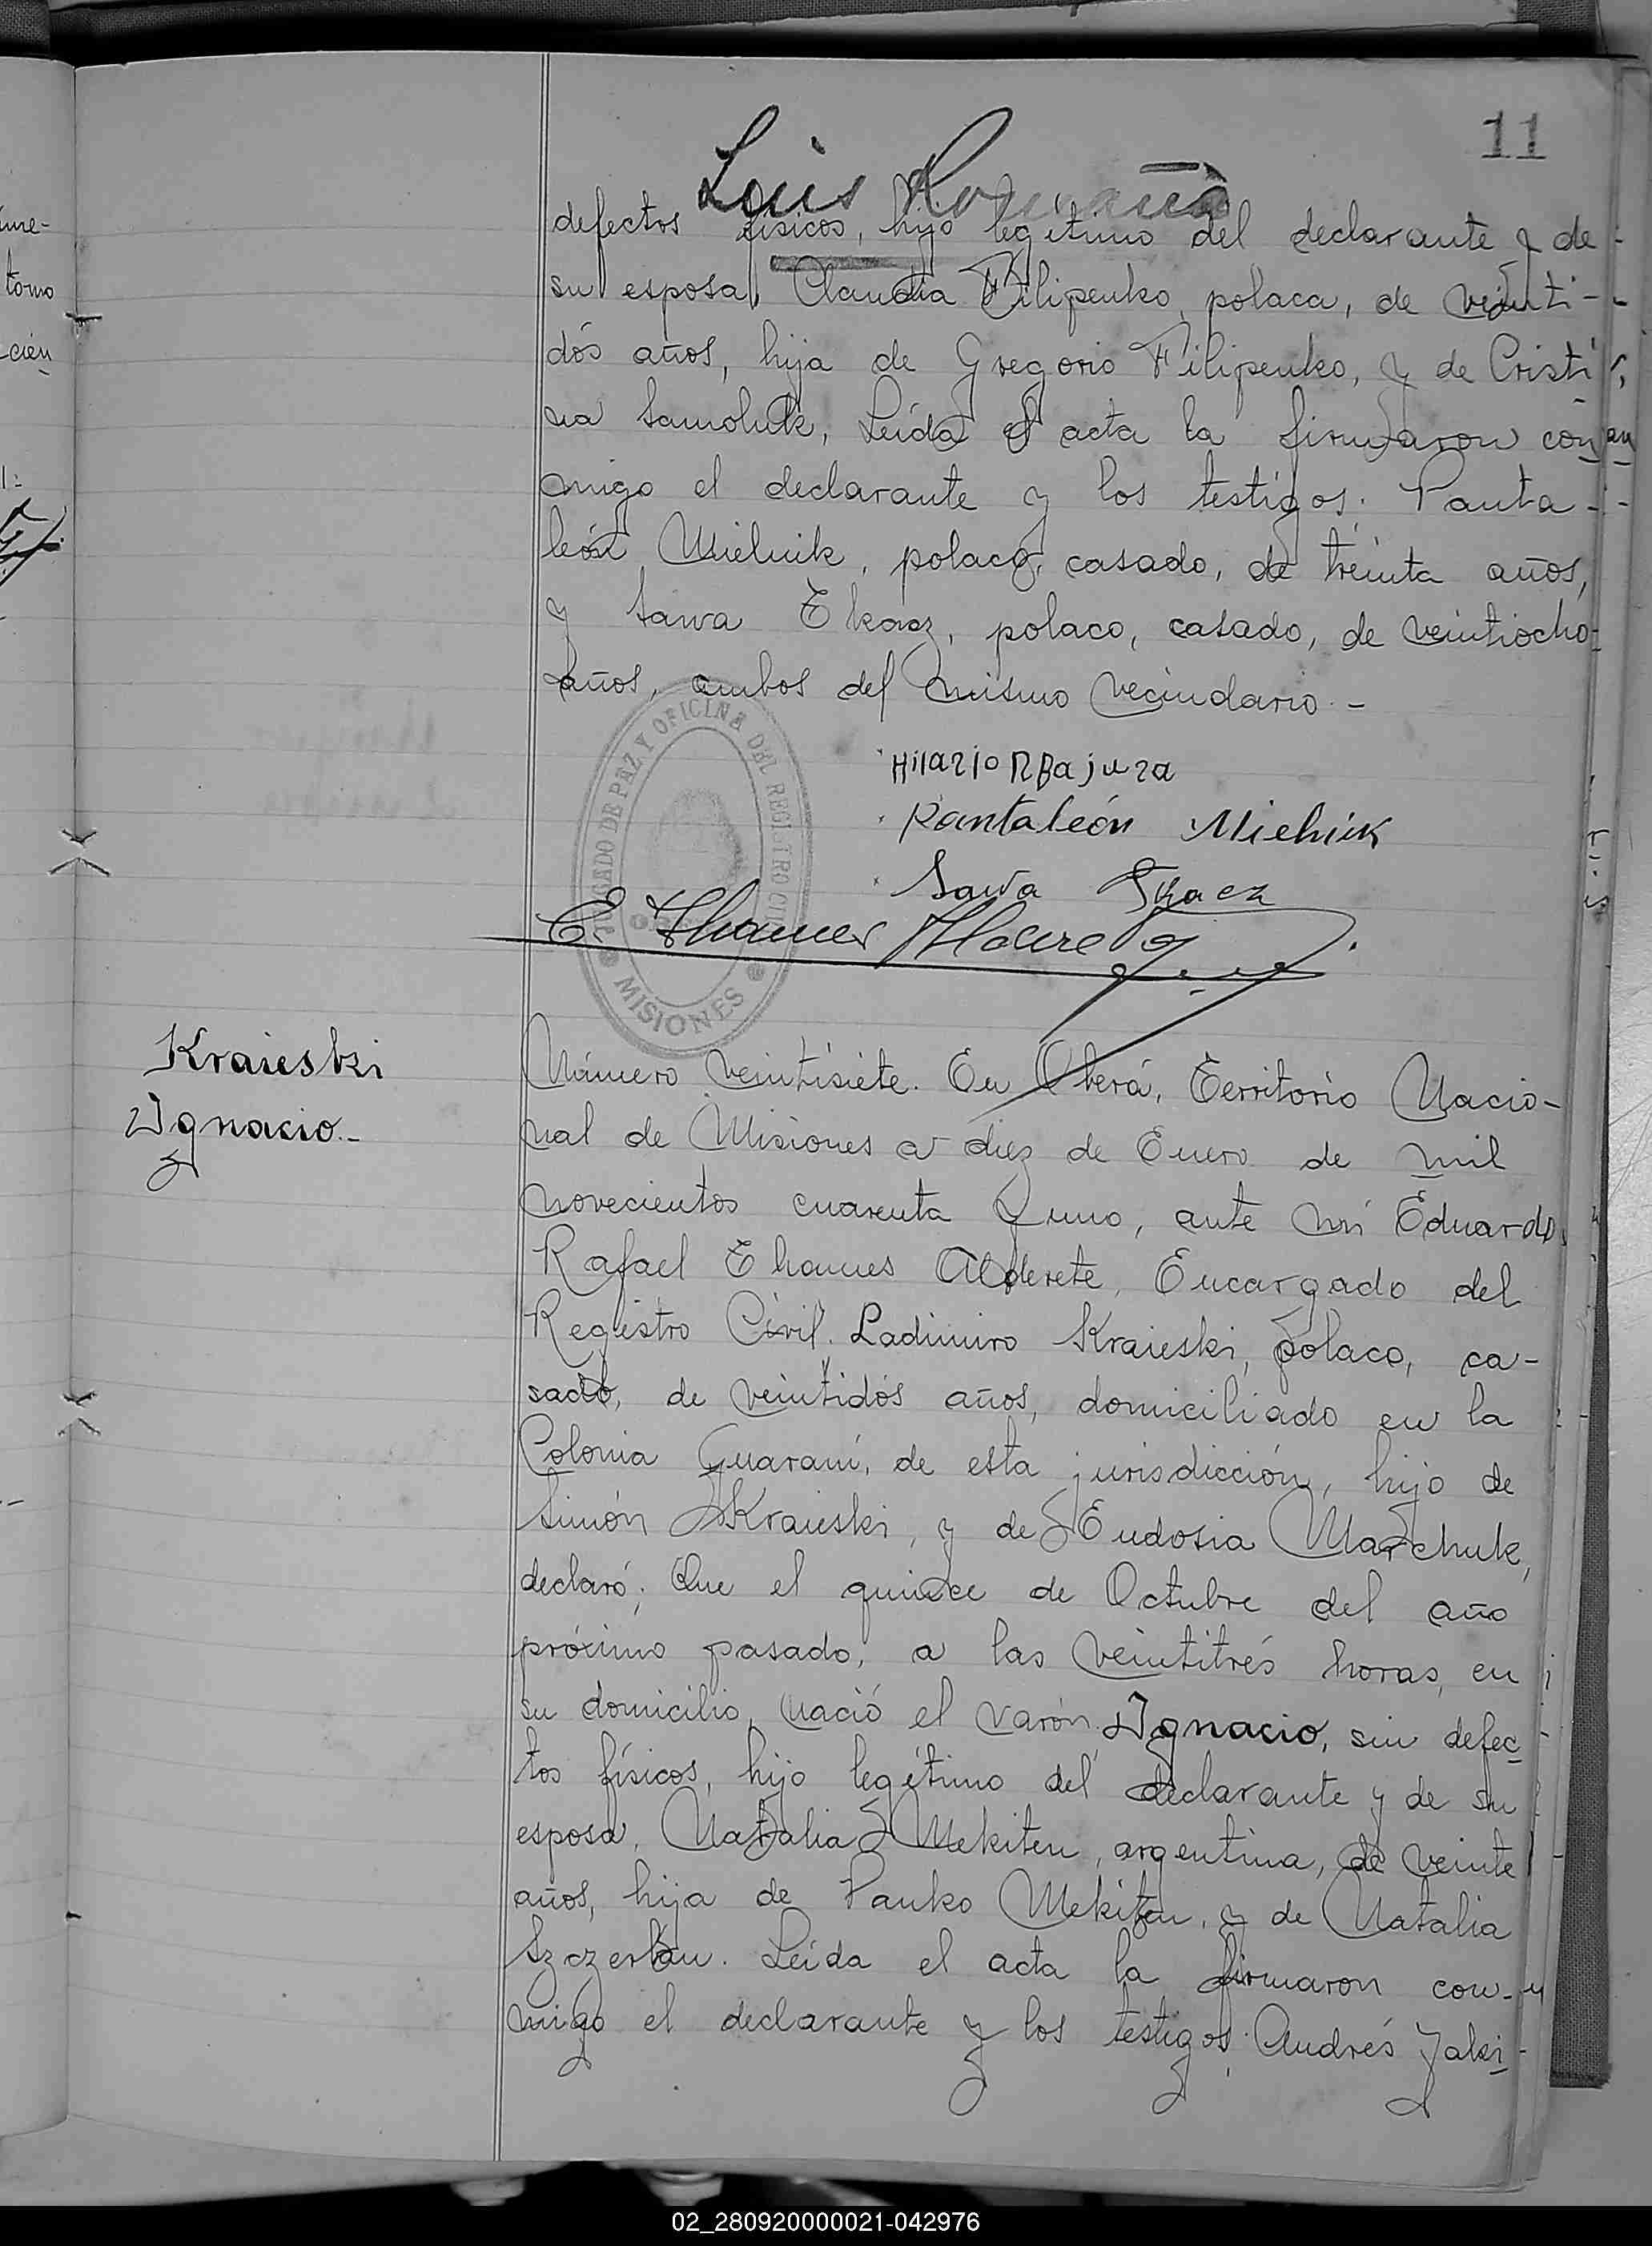 11
Luis Romaña
defectos físicos, hijo legítimo del declarante y de
su esposa, Claudia Filipenko, polaca, de veinti-
dós años, hija de Gregorio Filipenko, y de Cristi
na Samoluk, Leída el acta la firmaron con
migo el declarante y los testigos. Panta-
león Mielnik, polaco, casado, de treinta años,
y Sawa Tkacz, polaco, casado, de veintiocho-
años, ambos del mismo vecindario.-
JUZGADO DE PAZ Y OFICINA DEL REGISTRO CIVIL
MISIONES
Hilario Bajura
Pantaleón Mielnik
Sawa Tkacz
E. Thames Alderete
Kraieski
Ignacio.-
Número veintisiete. En Oberá, Territorio Nacio-
nal de Misiones a diez de Enero de mil
novecientos cuarenta y uno, ante mí Eduardo
Rafael Thames Alderete, Encargado del
Registro Civil. Ladimiro Kraieski, polaco, ca-
sado, de veintidós años, domiciliado en la
Colonia Guaraní, de esta jurisdicción, hijo de
Simón Kraieski, y de Eudosia Marchuk,
declaró; Que el quince de Octubre del año
próximo pasado, a las veintitrés horas, en
su domicilio, nació el varón Ignacio, sin defec
tos físicos, hijo legítimo del declarante y de su
esposa, Natalia Mekiten, argentina, de veinte
años, hija de Panko Mekiten, y de Natalia
Szczerban. Leída el acta la firmaron con-
migo el declarante y los testigos. Andrés Jaki-
02_280920000021-042976